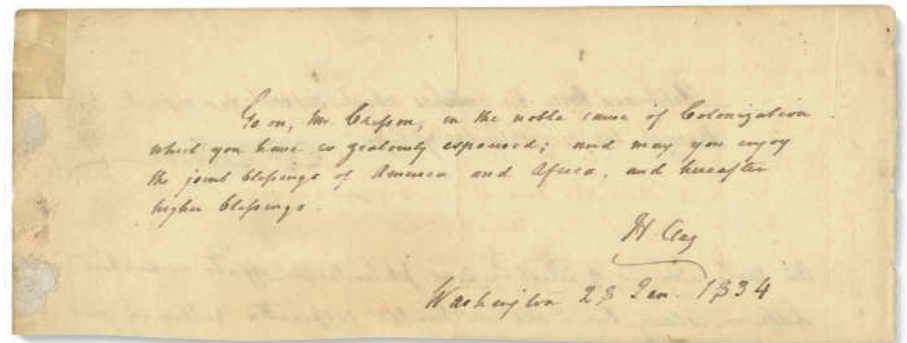 Go on, Mr. Cresson, in the noble cause of Colonization
which you have so zealously espoused; and may you enjoy
the joint blessings of America and Africa, and hereafter
higher blessings.
H. Clay
Washington 23 Jan. 1834